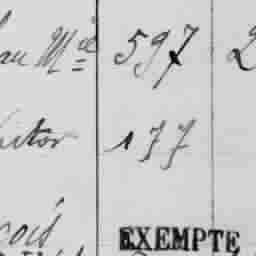 au Mel 597 2
ictor 177
çois
EXEMPTE